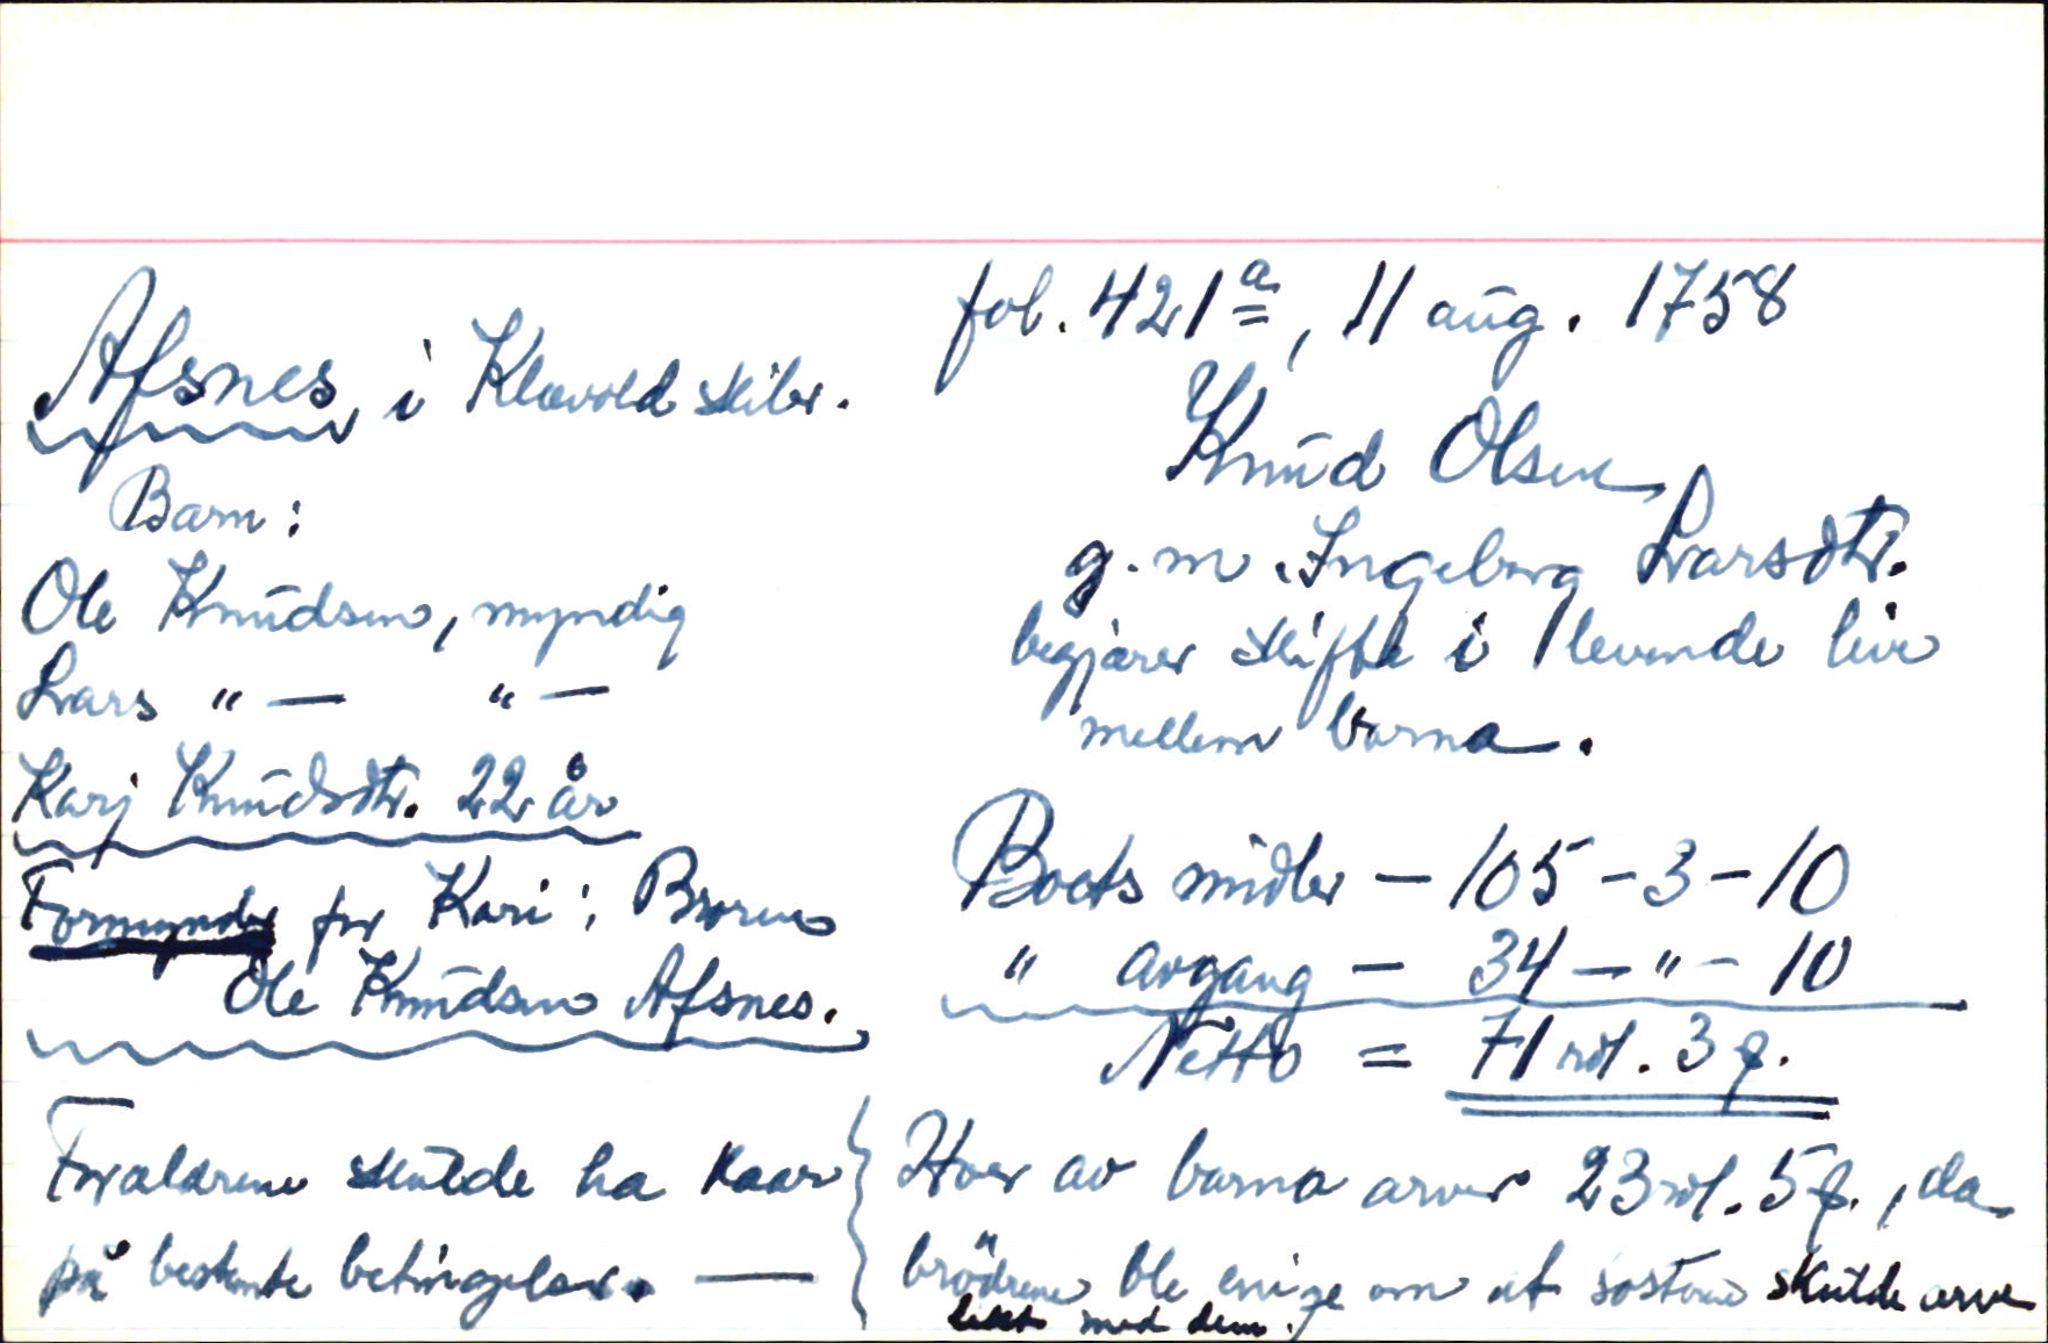 fol. 421ª, 11 aug. 1758
Afsnes, i Klævold skibr.
Knud Olsen
g. m. Ingeborg Larsdtr.
begjærer skifte i levende live
mellem barna.
Barn:
Ole Knudsen, myndig
Lars " — " —
Karj Knudsdtr. 22 år
Formynder for Kari: Broren
Ole Knudsen Afsnes.
Boets midler — 105 - 3 - 10
" avgang — 34 — " - 10
Netto = 71 rdl. 3 ƒ.
Forældrene skulde ha kaar
på bestemte betingelser. —
Hver av barna arver 23 rdl. 5 ƒ., da
brödrene ble enige om at sösteren skulde arve
likt med dem.